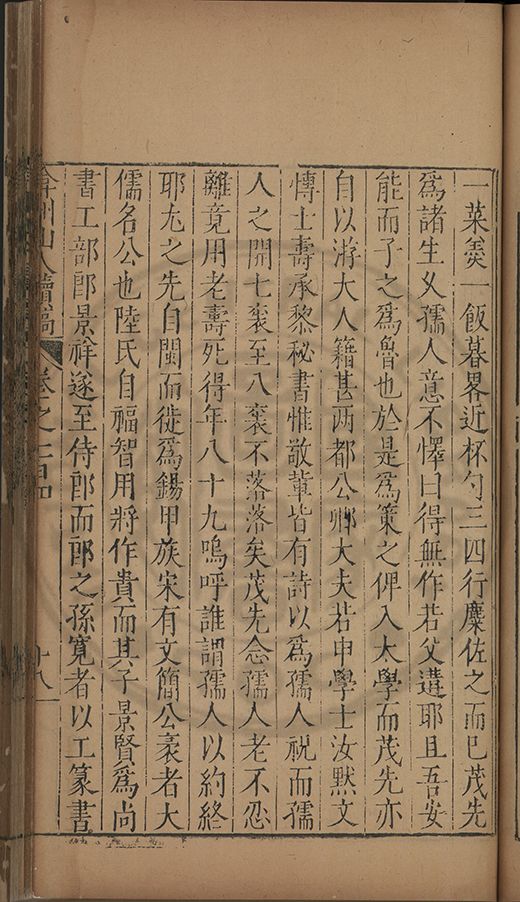 一菜羮一飯暮畧近杯勺三四行麋佐之而已茂先
爲諸生乆孺人意不懌曰得無作若父遺耶且吾安
能而子之爲魯也於是爲策之俾入太學而茂先亦
自以游大人籍甚两都公卿大夫若申學士汝默文
愽士壽承黎秘書惟敬輩皆有詩以爲孺人祝而孺
人之開七袠至八袠不落落矣茂先念孺人老不忍
離竟用老壽死得年八十九嗚呼誰謂孺人以約終
耶尤之先自閩而徙爲錫甲族宋有文簡公袤者大
儒名公也陸氏自福智用將作貴而其子景賢爲尚
書工部郎景祥遂至侍郎而郎之孫寛者以工篆書
弇州山人續稿 卷之一百四 十八